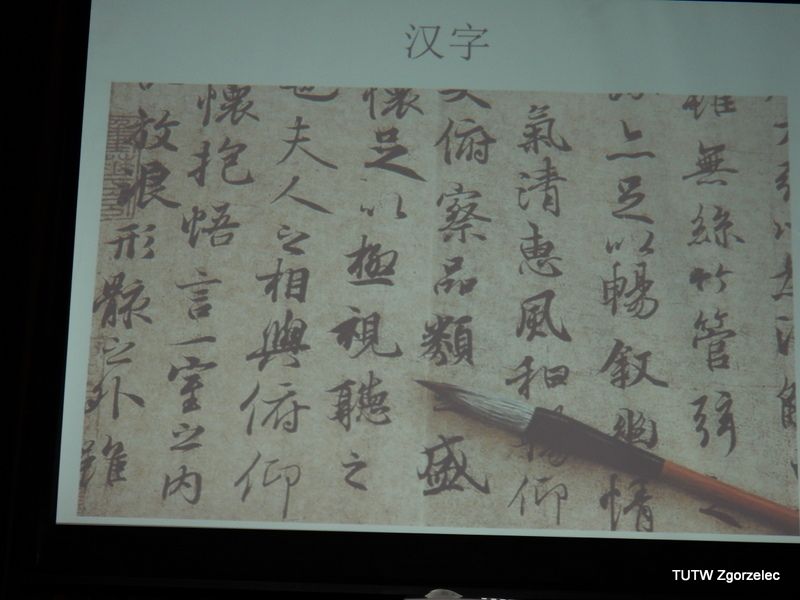 汉字
雖無絲竹管弦之
亦足以暢叙幽情
氣清惠風和暢仰
俯察品類之盛
懷足以極視聽之
也夫人之相與俯仰
懷抱悟言一室之內
放浪形骸之外雖
TUTW Zgorzelec